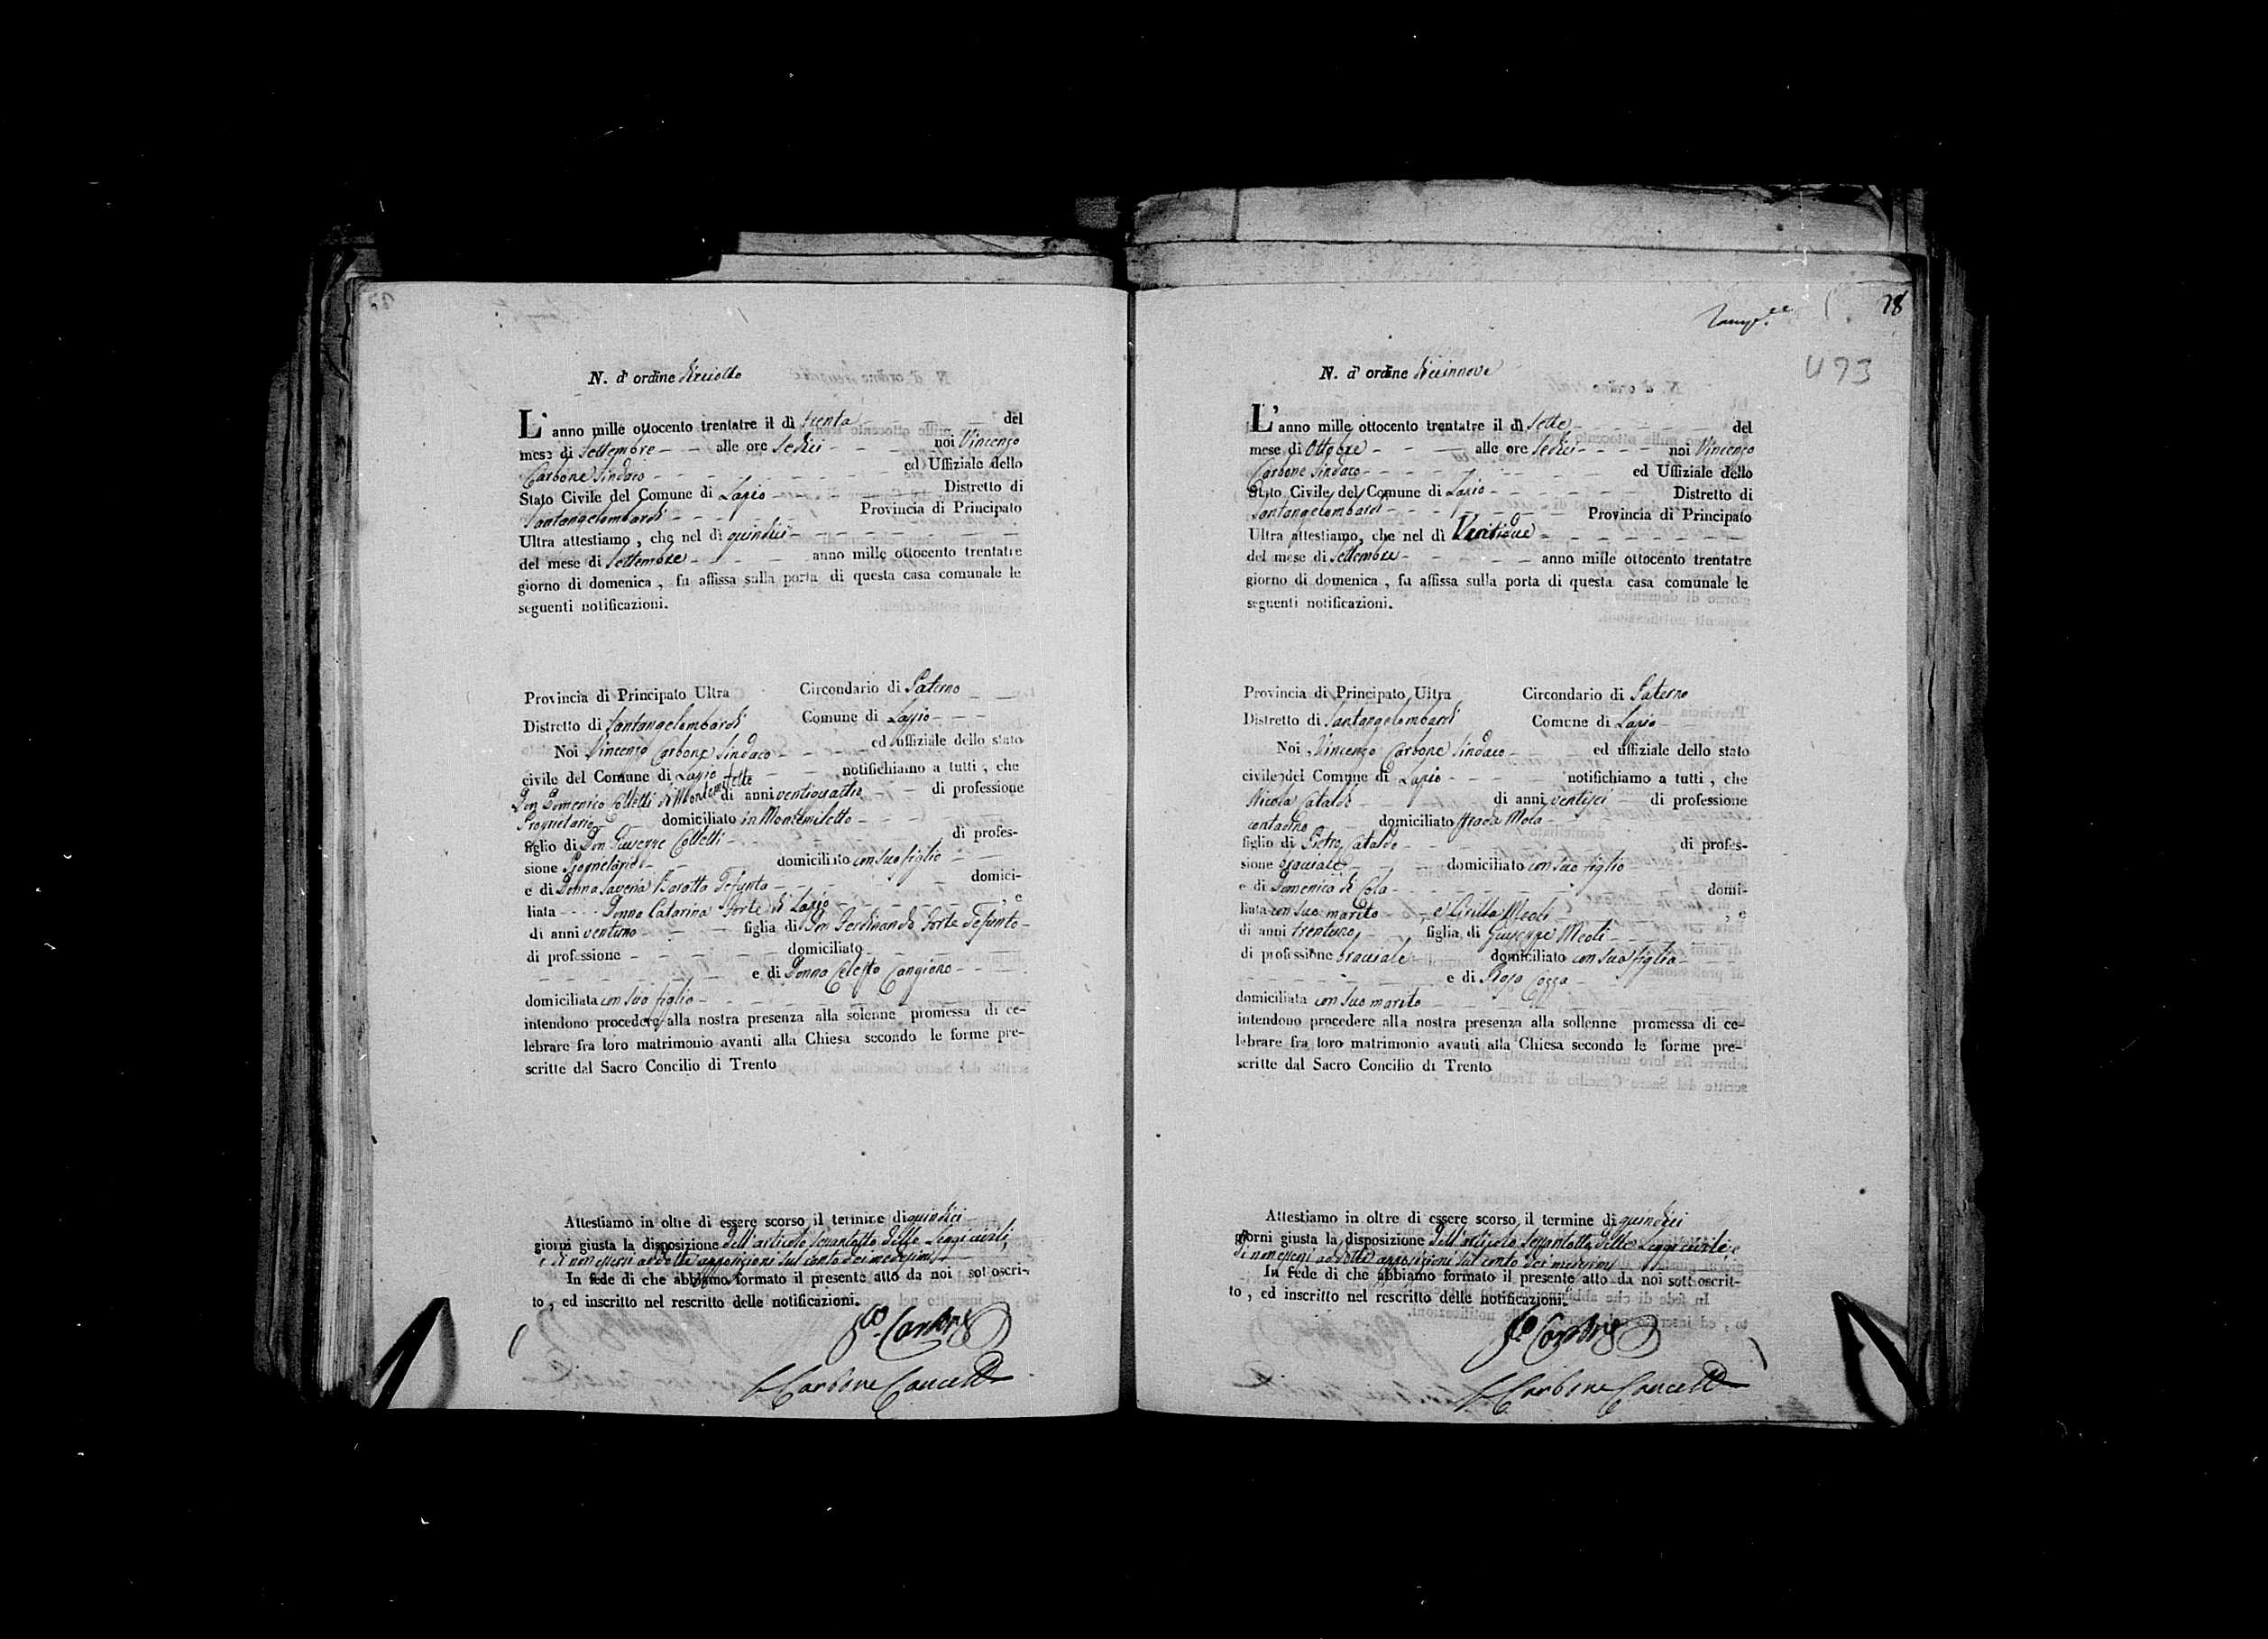 N. d' ordine diciotto
L' anno mille ottocento trentatre il dì trenta del
mese di Settembre alle ore Sedici noi Vincenzo
Carbone Sindaco ed Uffiziale dello
Stato Civile del Comune di Lapio Distretto di
Santangelombardi Provincia di Principato
Ultra attestiamo, che nel dì quindici
del mese di Settembre anno mille ottocento trentatre
giorno di domenica, fu affissa sulla porta di questa casa comunale le
seguenti notificazioni.
Provincia di Principato Ultra Circondario di Paterno
Distretto di Santangelombardi Comune di Lapio
Noi Vincenzo Carbone Sindaco ed uffiziale dello stato
civile del Comune di Lapio notifichiamo a tutti, che
Don Domenico Colletti di Montemiletto di anni ventiquattro di professione
Proprietario domiciliato in Montemiletto
figlio di Don Giuseppe Colletti di profes-
sione Proprietario domiciliato con suo figlio
e di Donna Saveria Baratta defunta domici-
liata Donna Catarina Forte di Lapio, e
di anni ventuno figlia di Don Ferdinando Forte defunto
di professione domiciliato
e di Donna Celesta Cangiano
domiciliata con suo figlio
intendono procedere alla nostra presenza alla solenne promessa di ce-
lebrare fra loro matrimonio avanti alla Chiesa secondo le forme pre-
scritte dal Sacro Concilio di Trento
Attestiamo in oltre di essere scorso il termine di quindici
giorni giusta la disposizione dell'articolo sessantotto delle Leggi civili,
e di non essersi addotte opposizioni sul conto dei medesimi
In fede di che abbiamo formato il presente atto da noi sottoscrit-
to, ed inscritto nel rescritto delle notificazioni.
Carbone
Carbone Cancell
78
493
N. d' ordine diciannove
L' anno mille ottocento trentatre il dì Sette del
mese di Ottobre alle ore Sedici noi Vincenzo
Carbone Sindaco ed Uffiziale dello
Stato Civile del Comune di Lapio Distretto di
Santangelombardi Provincia di Principato
Ultra attestiamo, che nel dì Ventidue
del mese di Settembre anno mille ottocento trentatre
giorno di domenica, fu affissa sulla porta di questa casa comunale le
seguenti notificazioni.
Provincia di Principato Ultra Circondario di Paterno
Distretto di Santangelombardi Comune di Lapio
Noi Vincenzo Carbone Sindaco ed uffiziale dello stato
civile del Comune di Lapio notifichiamo a tutti, che
Nicola Cataldo di anni ventisei di professione
contadino domiciliato strada Mola
figlio di Pietro Cataldo di profes-
sione bracciale domiciliato con suo figlio
e di Domenica di Cola domi-
liata con suo marito e Grilla Meoli, e
di anni trentuno figlia di Giuseppe Meoli
di professione bracciale domiciliato con sua figlia
e di Rosa Cozza
domiciliata con suo marito
intendono procedere alla nostra presenza alla sollenne promessa di ce-
lebrare fra loro matrimonio avanti alla Chiesa secondo le forme pre-
scritte dal Sacro Concilio di Trento
Attestiamo in oltre di essere scorso il termine di quindici
giorni giusta la disposizione dell'articolo sessantotto delle Leggi civili, e
di non essersi addotte opposizioni sul conto dei medesimi
In fede di che abbiamo formato il presente atto da noi sottoscrit-
to, ed inscritto nel rescritto delle notificazioni.
Carbone
Carbone Cancell